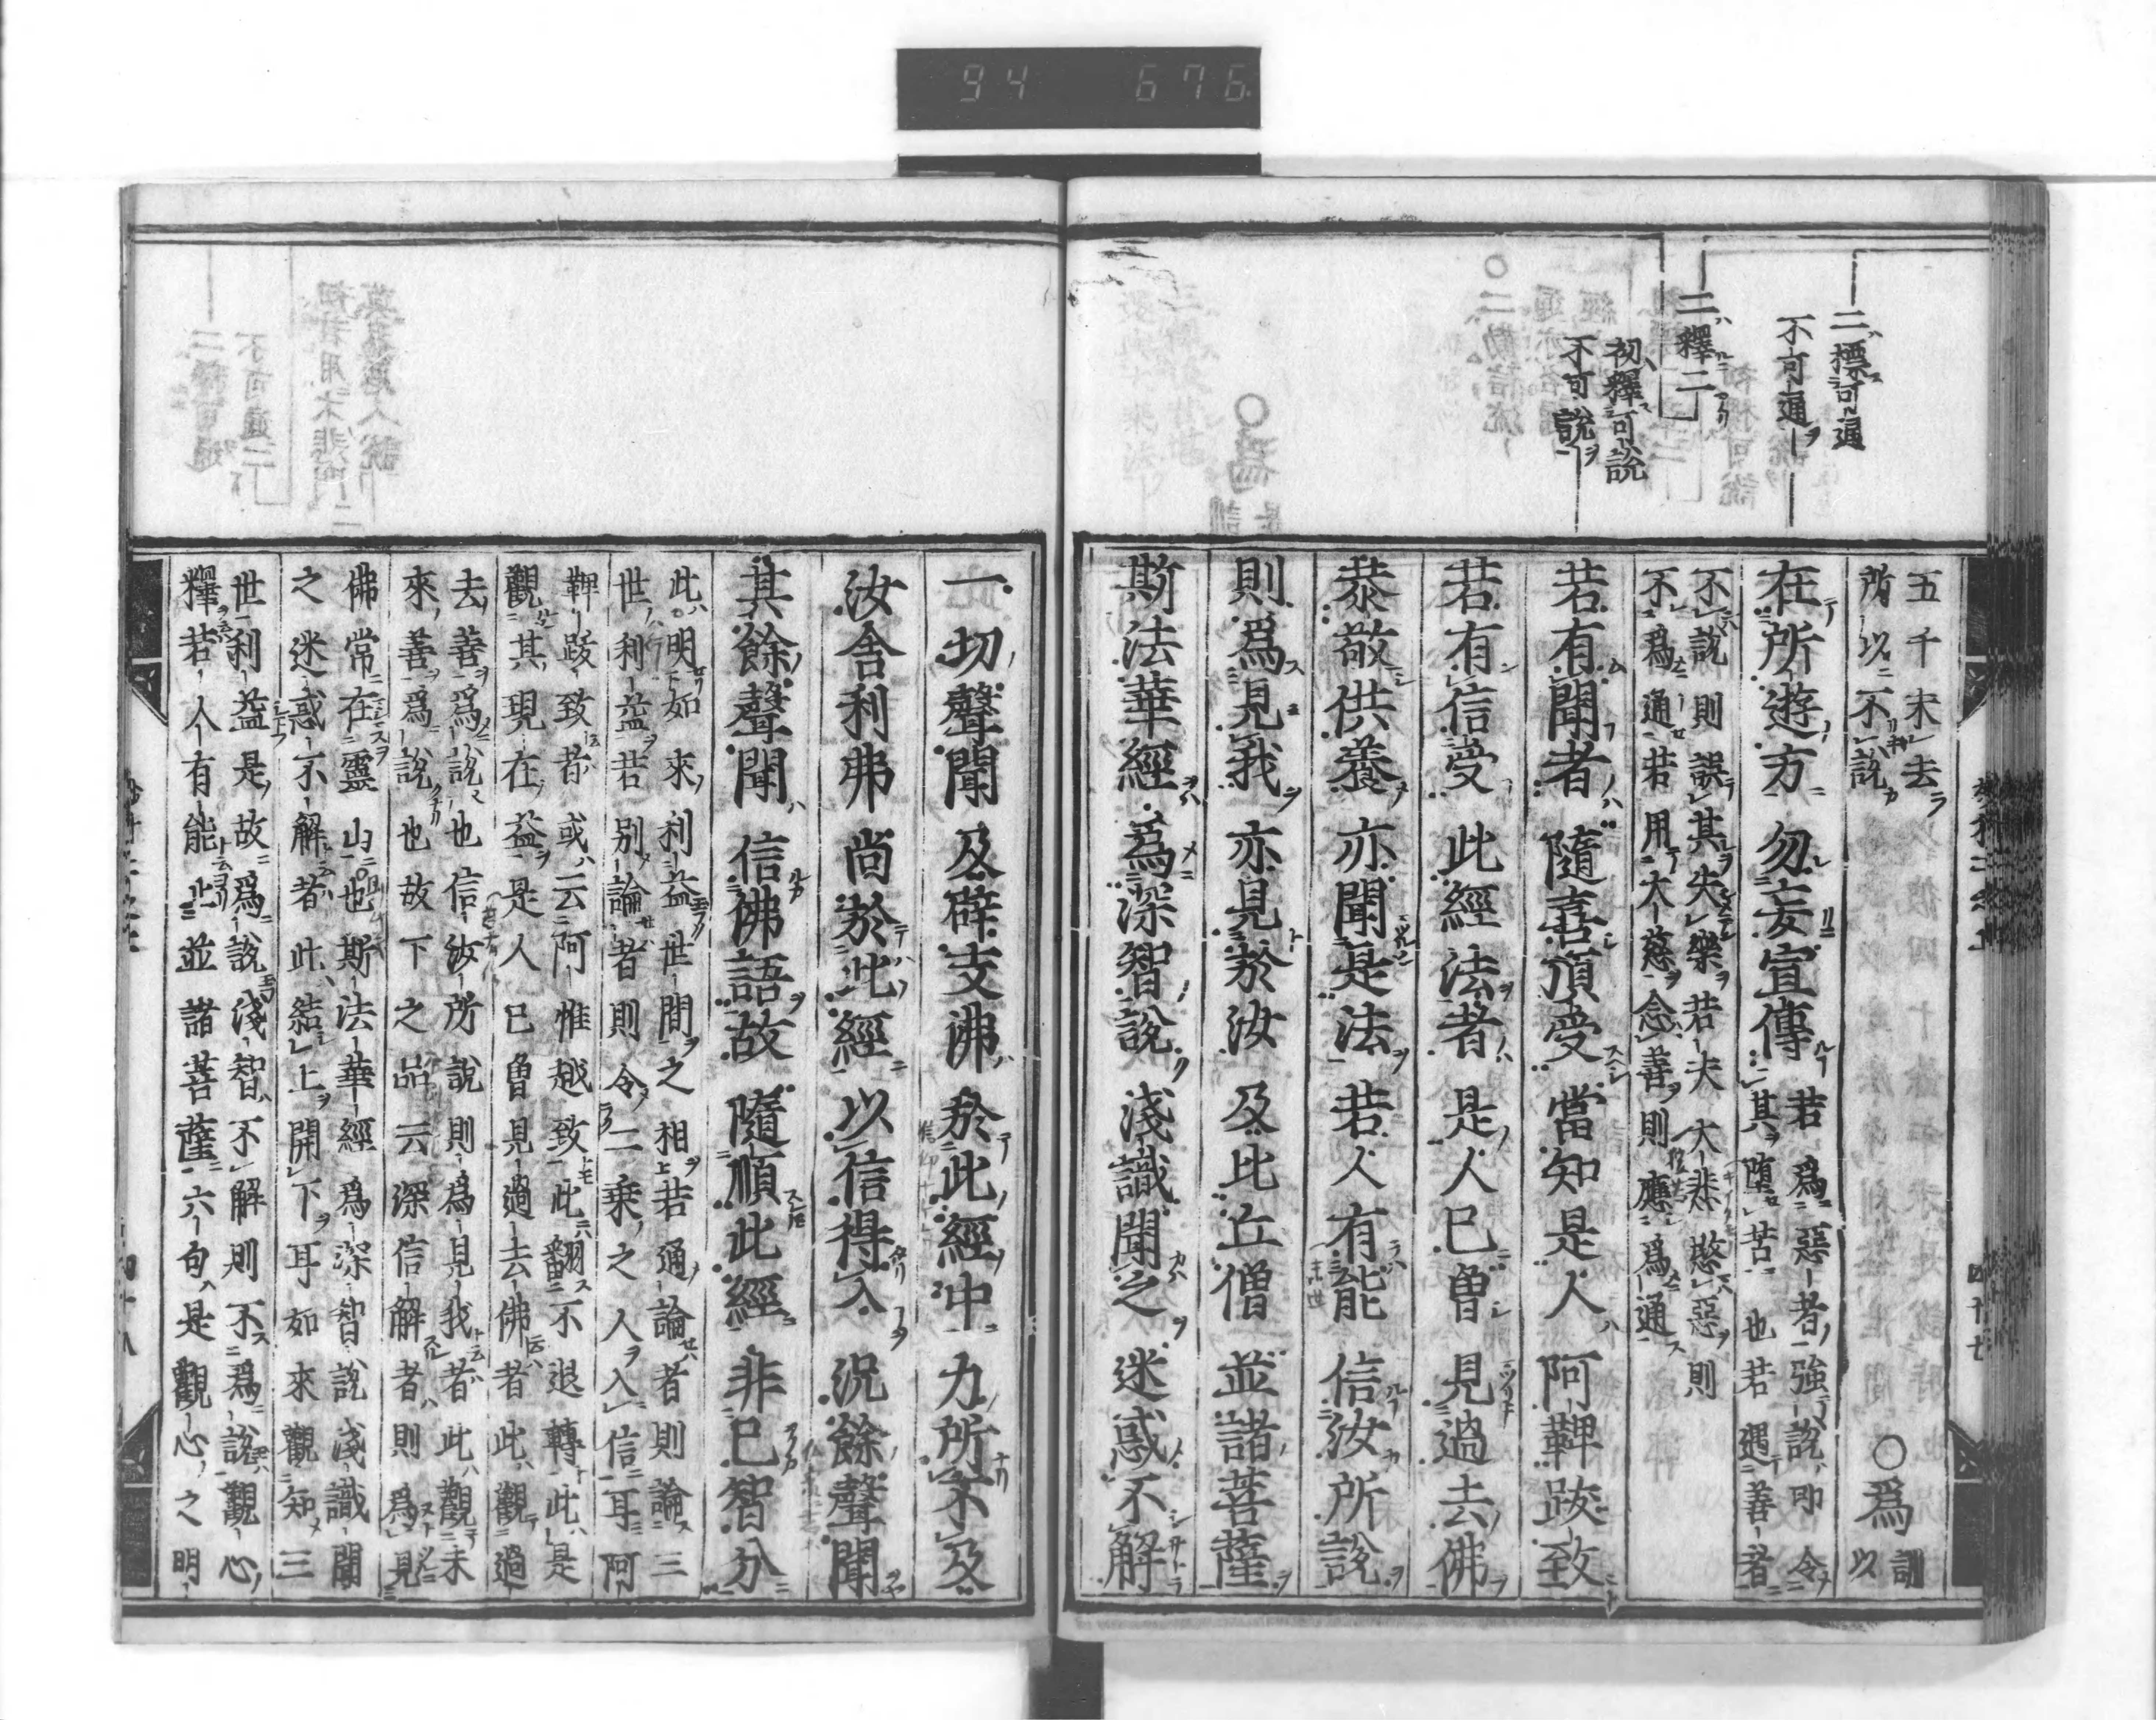 94 676
二標可通
不可通
二釋二
初釋可說
不可說
五千未去
所以不說
○爲 訓以
在所遊方 勿妄宣傳
若爲惡者強說即令
其墮苦也若遇善者
不說則誤其失樂若夫大悲愍惡則
不爲通若用大慈念善則應爲通
若有聞者 隨喜頂受 當知是人 阿鞞跋致
若有信受 此經法者 是人已曾 見過去佛
恭敬供養 亦聞是法 若人有能 信汝所說
則爲見我 亦見於汝 及比丘僧 並諸菩薩
斯法華經 爲深智說 淺識聞之 迷惑不解
一切聲聞 及辟支佛 於此經中 力所不及
汝舍利弗 尚於此經 以信得入 況餘聲聞
其餘聲聞 信佛語故 隨順此經 非已智分
此明如來利益世間之相若通論者則論三
世利益若別論者則令二乘之人入信耳阿
鞞跋致者或云阿惟越致此翻不退轉此是
觀其現在益是人已曾見過去佛者此觀過
去善爲說也信汝所說則爲見我者此觀未
來善爲說也故下之品云深信解者則爲見
佛常在靈山也斯法華經爲深智說淺識聞
之迷惑不解者此結上開下耳如來觀知三
世利益是故爲說淺智不解則不爲說觀心
釋若人有能止並諸菩薩六句是觀心之明